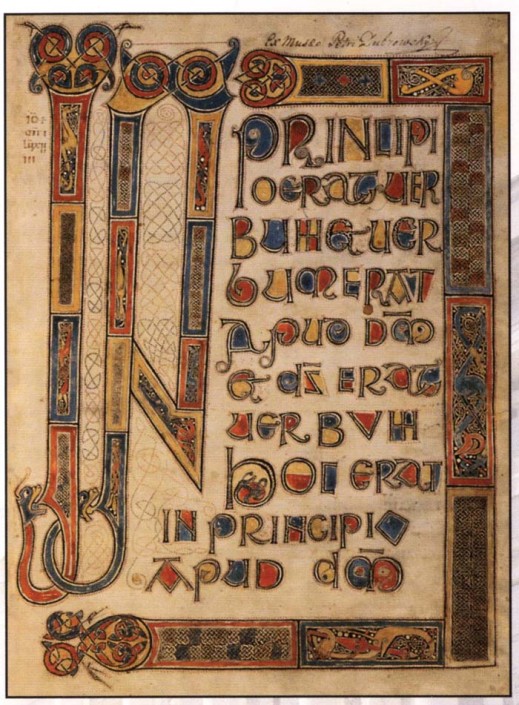 Ex Museo Petri Dubrowsky
IN
PRINCIPI
O ERAT UER
BUM ET UER
BUM ERAT
APUD DM̄
ET DS̄ ERAT
UERBUM
hOC ERAT
IN PRINCIPIO
APUD DM̄